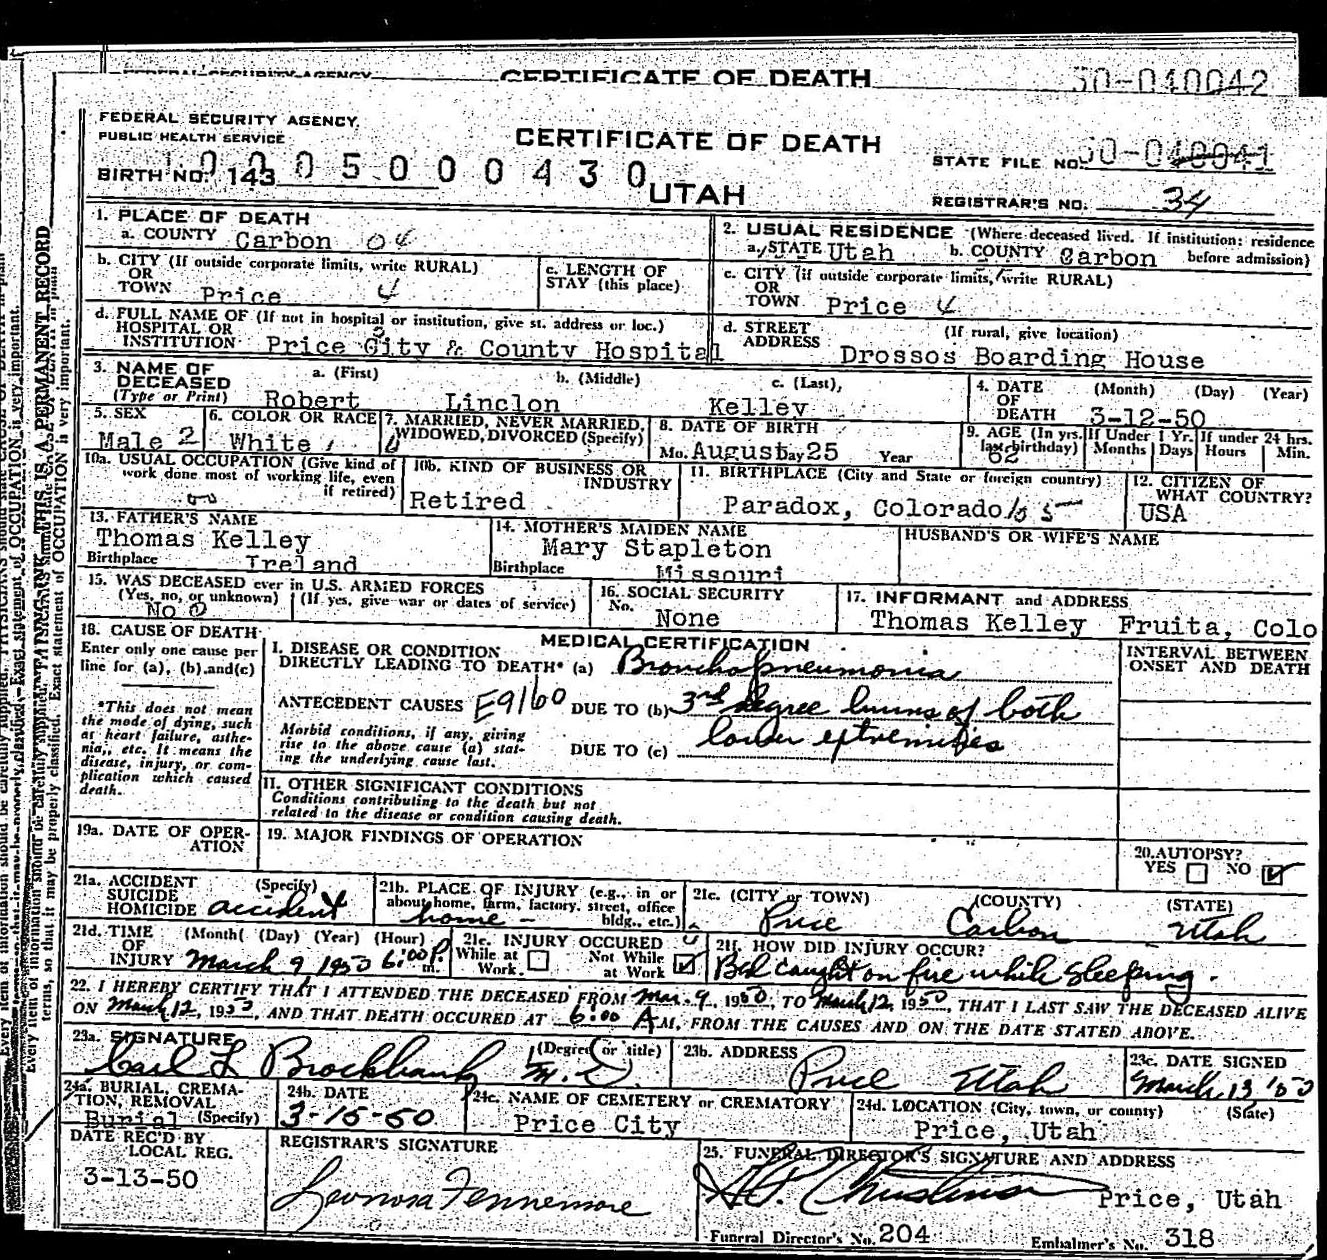 CERTIFICATE OF DEATH 50-040042
FEDERAL SECURITY AGENCY
PUBLIC HEALTH SERVICE
CERTIFICATE OF DEATH
STATE FILE NO. 50-040041
BIRTH NO. 143 0 5 0 0 0 4 3 0
UTAH
REGISTRAR'S NO. 34
1. PLACE OF DEATH
a. COUNTY Carbon 04
2. USUAL RESIDENCE (Where deceased lived. If institution: residence before admission)
a. STATE Utah b. COUNTY Carbon
b. CITY (If outside corporate limits, write RURAL)
OR
TOWN Price 4
c. LENGTH OF
STAY (this place)
c. CITY (if outside corporate limits, write RURAL)
OR
TOWN Price 4
d. FULL NAME OF (If not in hospital or institution, give st. address or loc.)
HOSPITAL OR
INSTITUTION Price City & County Hospital
d. STREET (If rural, give location)
ADDRESS Drossos Boarding House
3. NAME OF
DECEASED
(Type or Print)
a. (First) b. (Middle) c. (Last)
Robert Linclon Kelley
4. DATE (Month) (Day) (Year)
OF
DEATH 3-12-50
5. SEX
Male 2
6. COLOR OR RACE
White
7. MARRIED, NEVER MARRIED,
WIDOWED, DIVORCED (Specify)
8. DATE OF BIRTH
Mo. August Day 25 Year
9. AGE (In yrs. last birthday) 62
If Under 1 Yr. Months Days
If under 24 hrs. Hours Min.
10a. USUAL OCCUPATION (Give kind of
work done most of working life, even
if retired)
10b. KIND OF BUSINESS OR
INDUSTRY
Retired
11. BIRTHPLACE (City and State or foreign country)
Paradox, Colorado
12. CITIZEN OF
WHAT COUNTRY?
USA
13. FATHER'S NAME
Thomas Kelley
Birthplace Ireland
14. MOTHER'S MAIDEN NAME
Mary Stapleton
Birthplace Missouri
HUSBAND'S OR WIFE'S NAME
15. WAS DECEASED ever in U.S. ARMED FORCES
(Yes, no, or unknown) (If yes, give war or dates of service)
No 0
16. SOCIAL SECURITY
No. None
17. INFORMANT and ADDRESS
Thomas Kelley Fruita, Colo
18. CAUSE OF DEATH
Enter only one cause per
line for (a), (b) and (c)
*This does not mean
the mode of dying, such
as heart failure, asthe-
nia, etc. It means the
disease, injury, or com-
plication which caused
death.
MEDICAL CERTIFICATION
I. DISEASE OR CONDITION
DIRECTLY LEADING TO DEATH* (a) Bronchopneumonia
ANTECEDENT CAUSES E9160 DUE TO (b) 3rd degree burns of both
Morbid conditions, if any, giving
rise to the above cause (a) stat-
ing the underlying cause last.
DUE TO (c) lower extremities
II. OTHER SIGNIFICANT CONDITIONS
Conditions contributing to the death but not
related to the disease or condition causing death.
INTERVAL BETWEEN
ONSET AND DEATH
19a. DATE OF OPER-
ATION
19. MAJOR FINDINGS OF OPERATION
20. AUTOPSY?
YES NO
21a. ACCIDENT (Specify)
SUICIDE
HOMICIDE accident
21b. PLACE OF INJURY (e.g., in or
about home, farm, factory, street, office
bldg., etc.)
home -
21c. (CITY or TOWN) (COUNTY) (STATE)
Price Carbon Utah
21d. TIME (Month) (Day) (Year) (Hour)
OF
INJURY March 9, 1950 6:00 P. m.
21e. INJURY OCCURED
While at Work Not While at Work
21f. HOW DID INJURY OCCUR?
Bed caught on fire while sleeping.
22. I HEREBY CERTIFY THAT I ATTENDED THE DECEASED FROM Mar. 9, 1950, TO March 12, 1950, THAT I LAST SAW THE DECEASED ALIVE
ON March 12, 1950, AND THAT DEATH OCCURED AT 6:00 A M, FROM THE CAUSES AND ON THE DATE STATED ABOVE.
23a. SIGNATURE (Degree or title)
Carl L Brockbank M.D.
23b. ADDRESS
Price Utah
23c. DATE SIGNED
March 13, '50
24a. BURIAL, CREMA-
TION, REMOVAL
(Specify)
Burial
24b. DATE
3-15-50
24c. NAME OF CEMETERY or CREMATORY
Price City
24d. LOCATION (City, town, or county) (State)
Price, Utah
DATE REC'D BY
LOCAL REG.
3-13-50
REGISTRAR'S SIGNATURE
Leonora Fennemore
25. FUNERAL DIRECTOR'S SIGNATURE AND ADDRESS
Price, Utah
Funeral Director's No. 204 Embalmer's No. 318